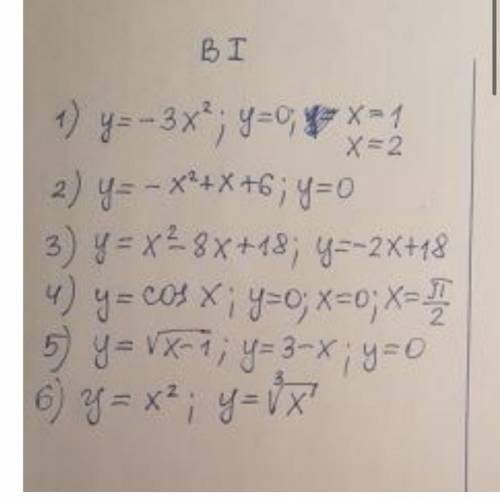 В I
1) y=-3x²; y=0; x=1
x=2
2) y=-x²+x+6; y=0
3) y=x²-8x+18; y=-2x+18
4) y=cos x; y=0; x=0; x=π/2
5) y=√(x-1); y=3-x; y=0
6) y=x²; y=∛x